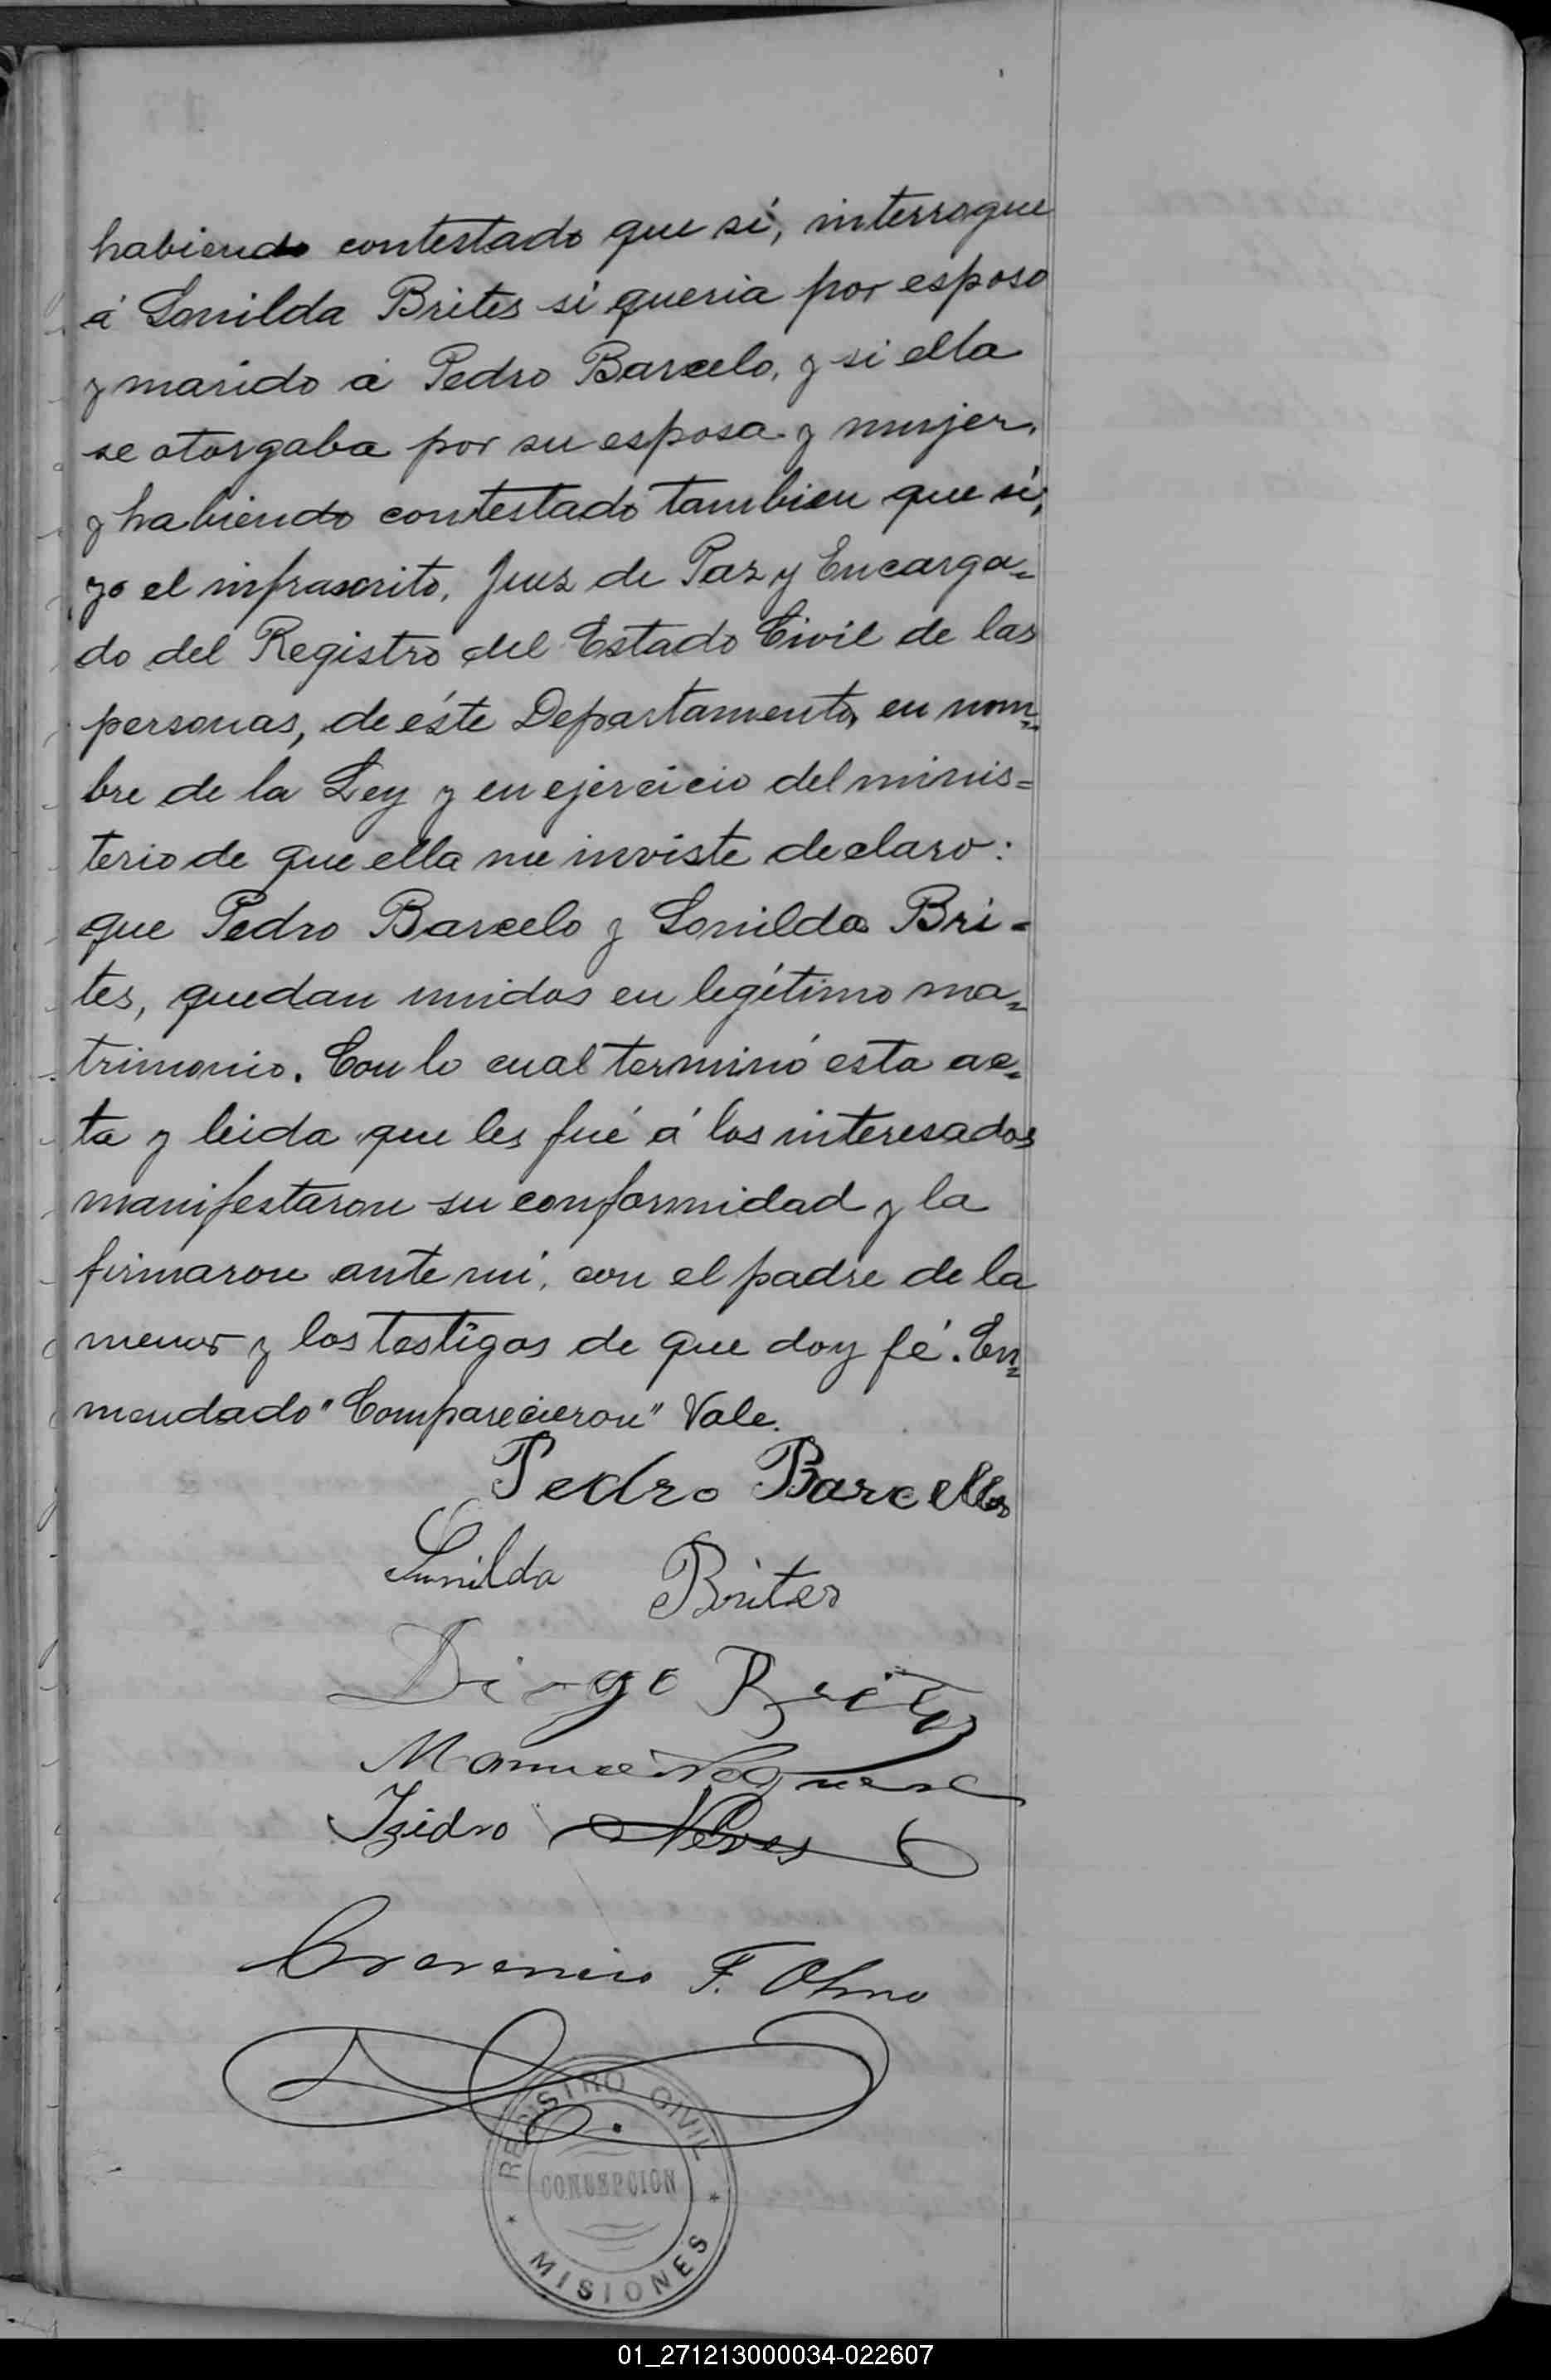 habiendo contestado que sí, interrogue
á Lonilda Brites si queria por esposo
y marido á Pedro Barcelo, y si ella
se otorgaba por su esposa y mujer,
y habiendo contestado tambien que sí,
yo el infrascrito, Juez de Paz y Encarga=
do del Registro del Estado Civil de las
personas, de éste Departamento, en nom=
bre de la Ley y en ejercicio del minis=
terio de que ella me inviste declaro:
que Pedro Barcelo y Lonilda Bri=
tes, quedan unidos en legítimo ma=
trimonio. Con lo cual terminó esta ac=
ta y leida que les fué á los interesados
manifestaron su conformidad y la
firmaron ante mi, con el padre de la
menor y los testigos de que doy fé. En=
mendado "Comparecieron" Vale.
Pedro Barcellos
Lunilda Brites
Diogo Brites
Manuel Noguera
Izidro Neves
F. Olmo
REGISTRO CIVIL
CONCEPCION
* MISIONES *
01_271213000034-022607